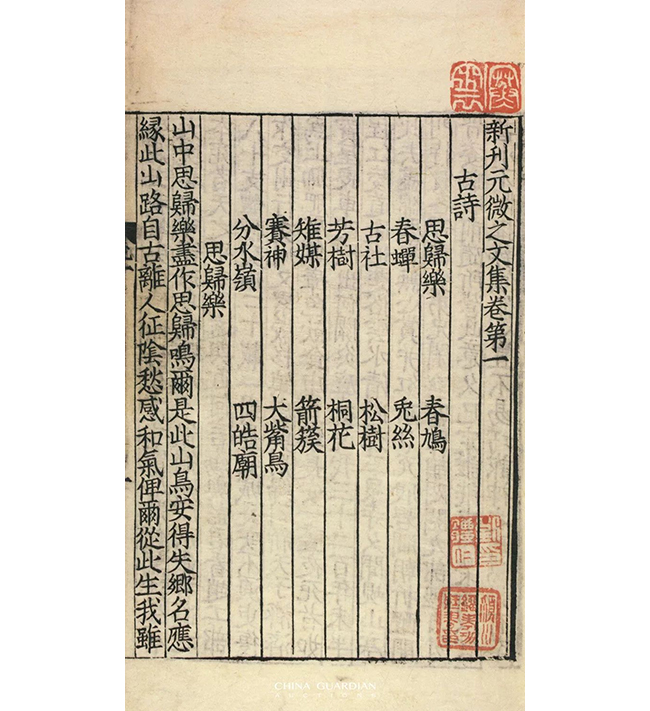 新刊元微之文集卷第一
古詩
思歸樂 春鳩
春蟬 兎絲
古社 松樹
芳樹 桐花
雉媒 箭簇
賽神 大觜烏
分水嶺 四皓廟
思歸樂
山中思歸樂盡作思歸鳴爾是此山鳥安得失鄉名應
緣此山路自古離人征陰愁感和氣俾爾從此生我雖
CHINA GUARDIAN
AUCTIONS